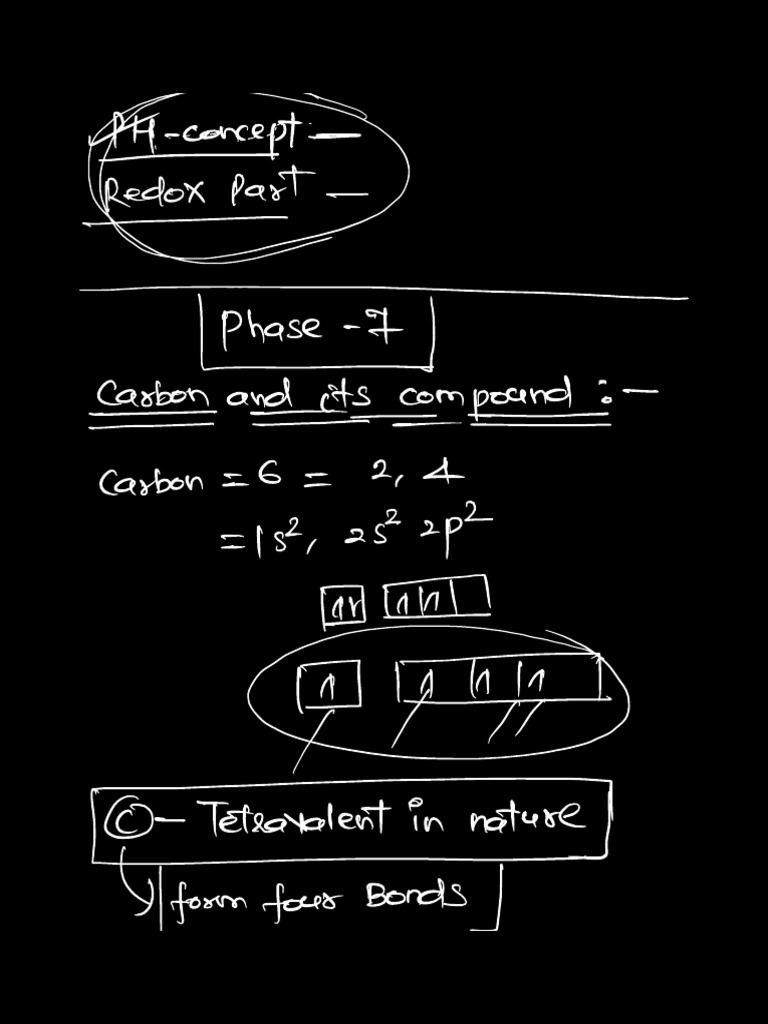 PH-concept :-
Redox Part -
Phase -7
Carbon and its compound :-
Carbon = 6 = 2, 4
= 1s², 2s² 2p²
1r 1 1
1 1 1 1
C - Tetravalent in nature
form four Bonds